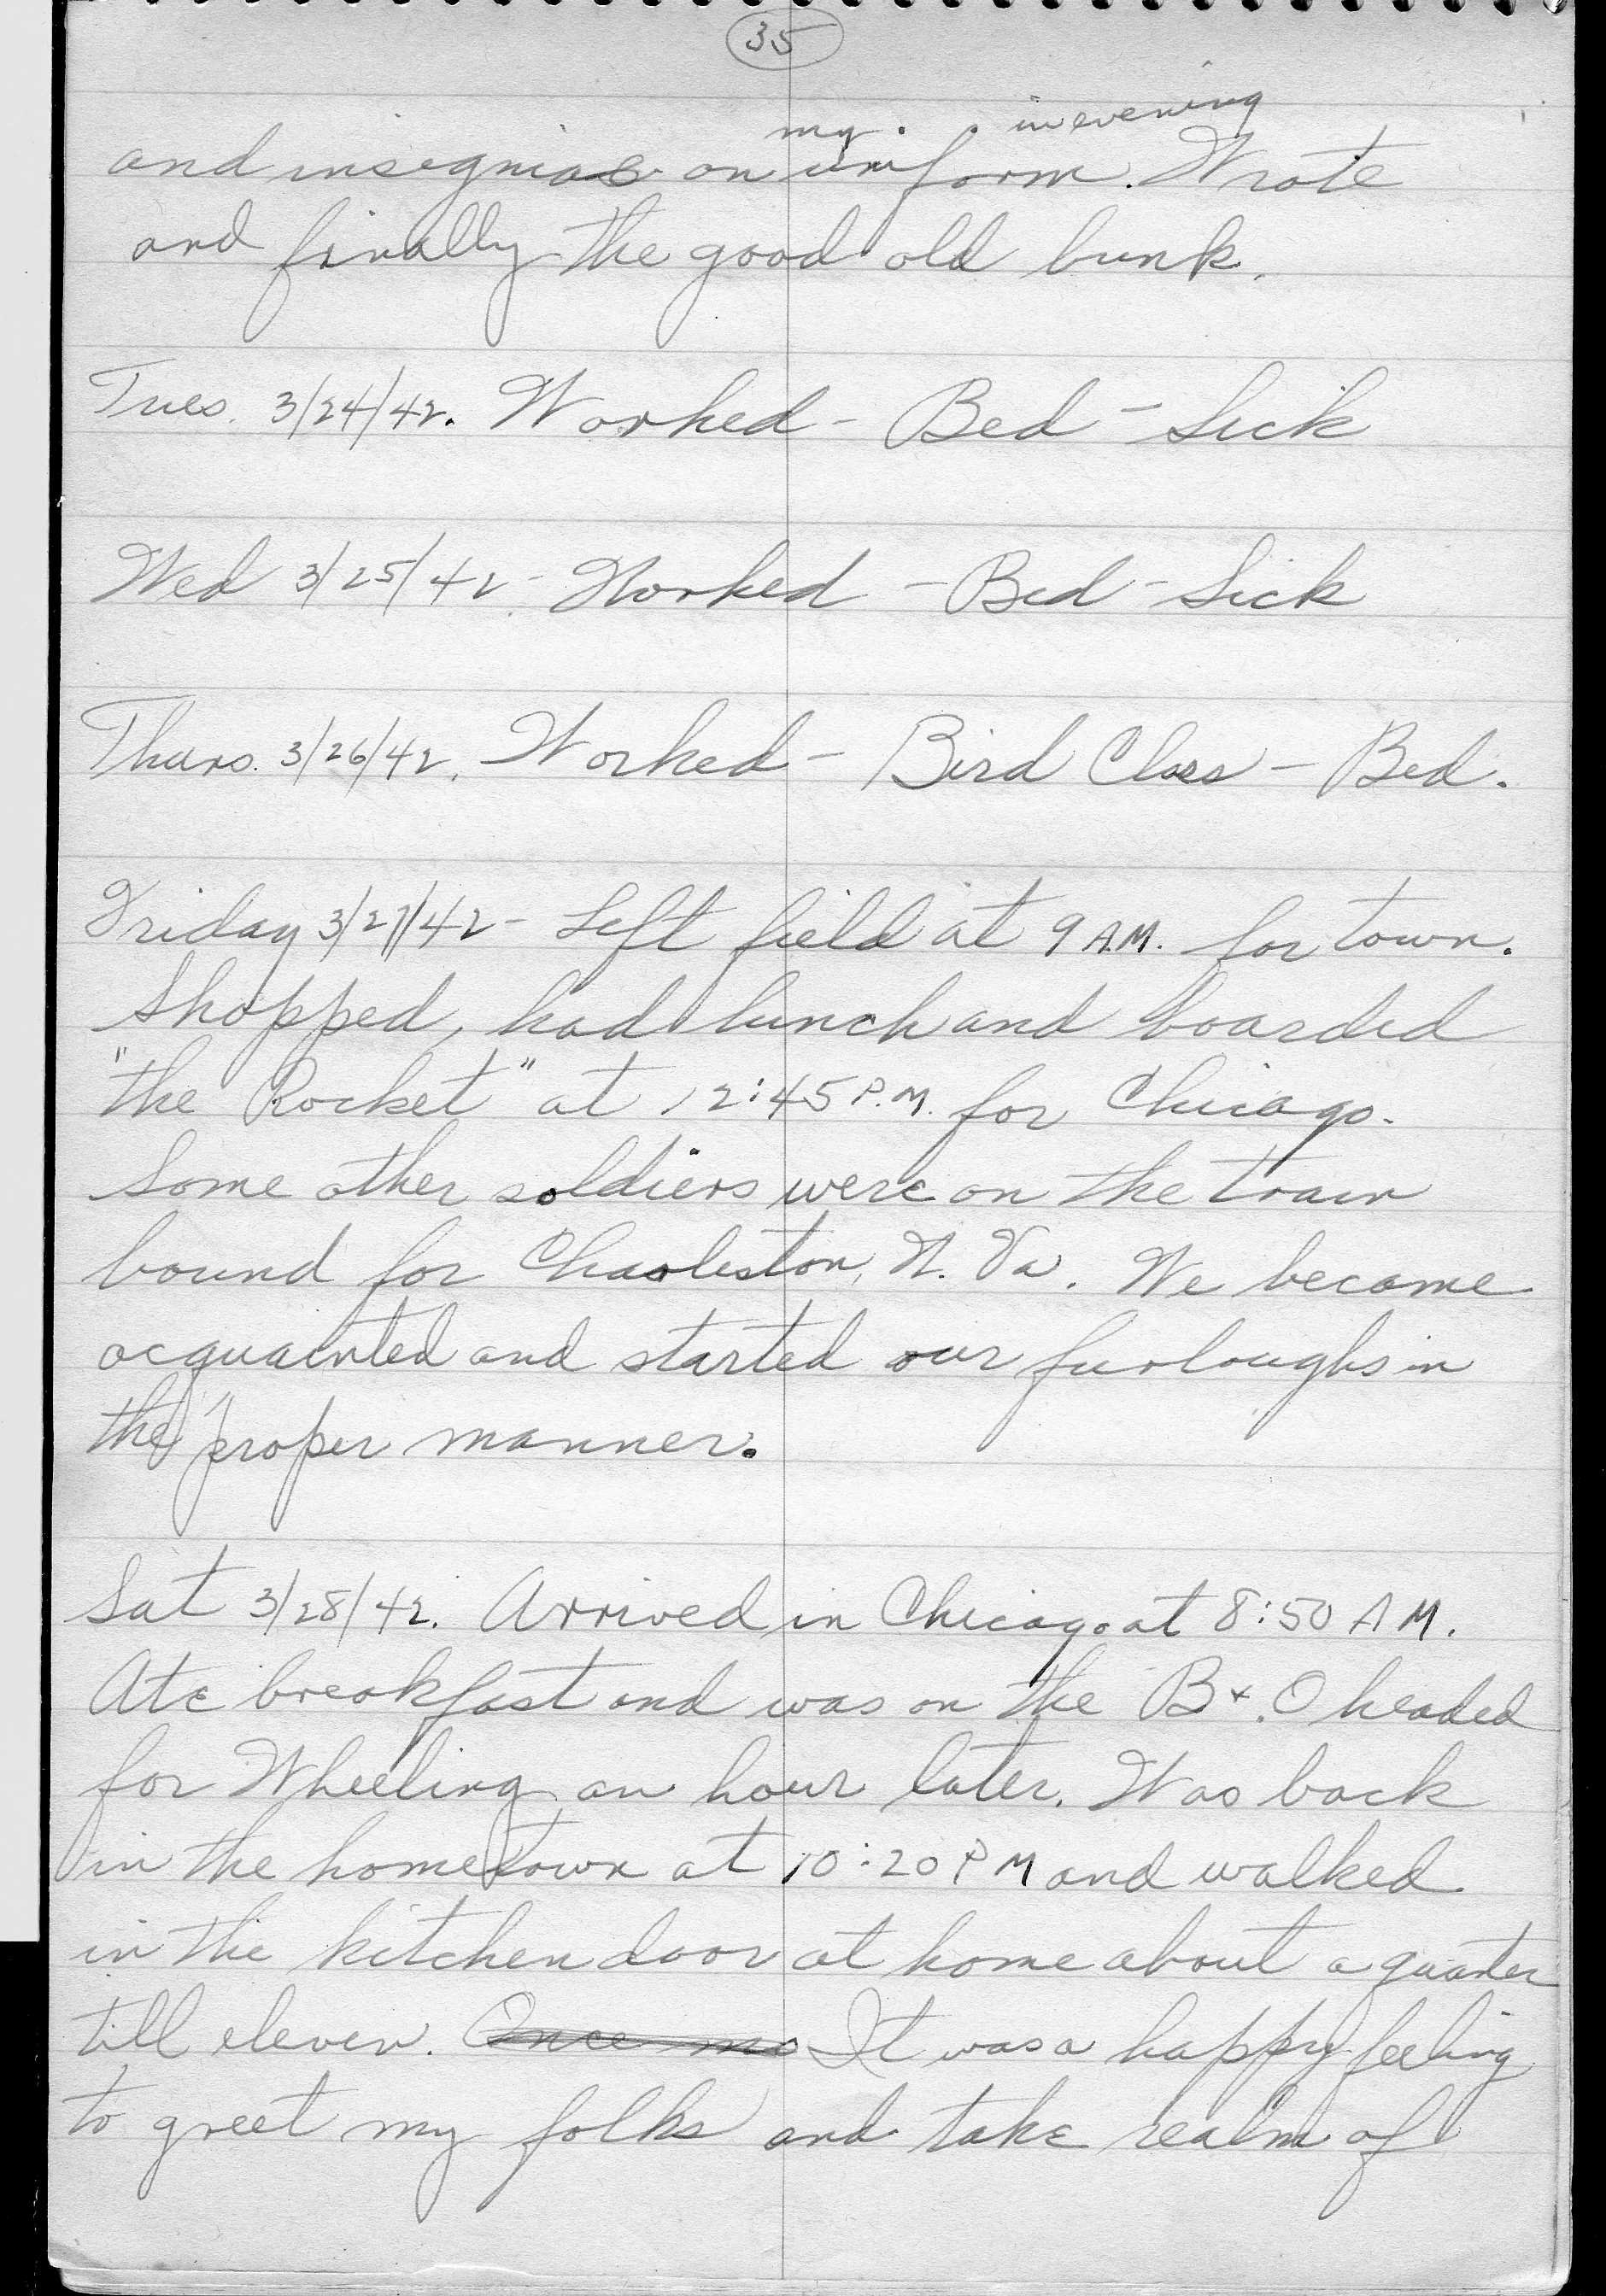 35
and insignias on my uniform. Wrote in evening
and finally the good old bunk.
Tues. 3/24/42. Worked - Bed - Sick
Wed 3/25/42 - Worked - Bed - Sick
Thurs. 3/26/42. Worked - Bird Class - Bed.
Friday 3/27/42 - Left field at 9 A.M. for town.
Shopped, had lunch and boarded
"the Rocket" at 12:45 P.M. for Chicago.
Some other soldiers were on the train
bound for Charleston, W. Va. We became
acquainted and started our furloughs in
the proper manner.
Sat 3/28/42. Arrived in Chicago at 8:50 A M.
Ate breakfast and was on the B + O headed
for Wheeling an hour later. Was back
in the hometown at 10:20 P M and walked
in the kitchen door at home about a quarter
till eleven. Once mo It was a happy feeling
to greet my folks and take realm of